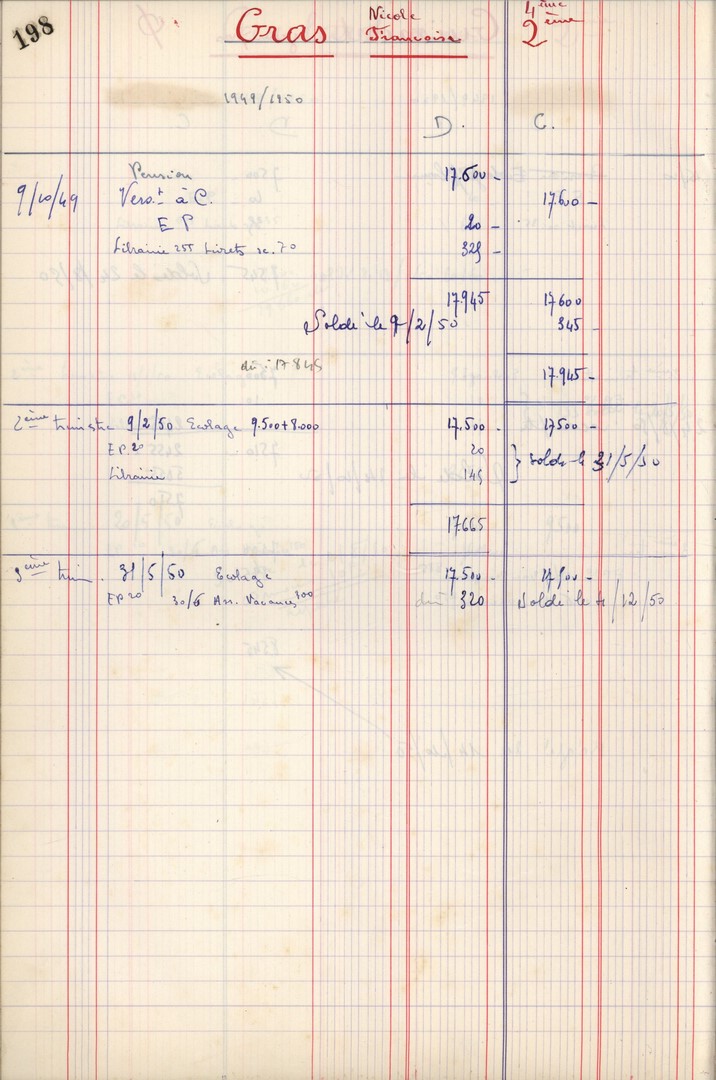 198 Gras Nicole 4ème
Francoise 2ème
1949/1950
D. C.
Pension 17.600 -
9/10/49 Versᵗ à C. 17600 -
E P 20 -
Librairie 255 Livrets sc. 70 325 -
17.945 17600
Soldé le 9/2/50 345 -
dû : 17845
17.945 -
2ème trimestre 9/2/50 Ecolage 9.500+8.000 17.500 - 17500 -
EP 20 20 } soldé le 31/5/50
Librairie 145
17.665
3ème trim. 31/5/50 Ecolage 17.500 - 17500 -
EP 20 30/6 Ass. Vacances 300 dû 320 Soldé le 4/12/50